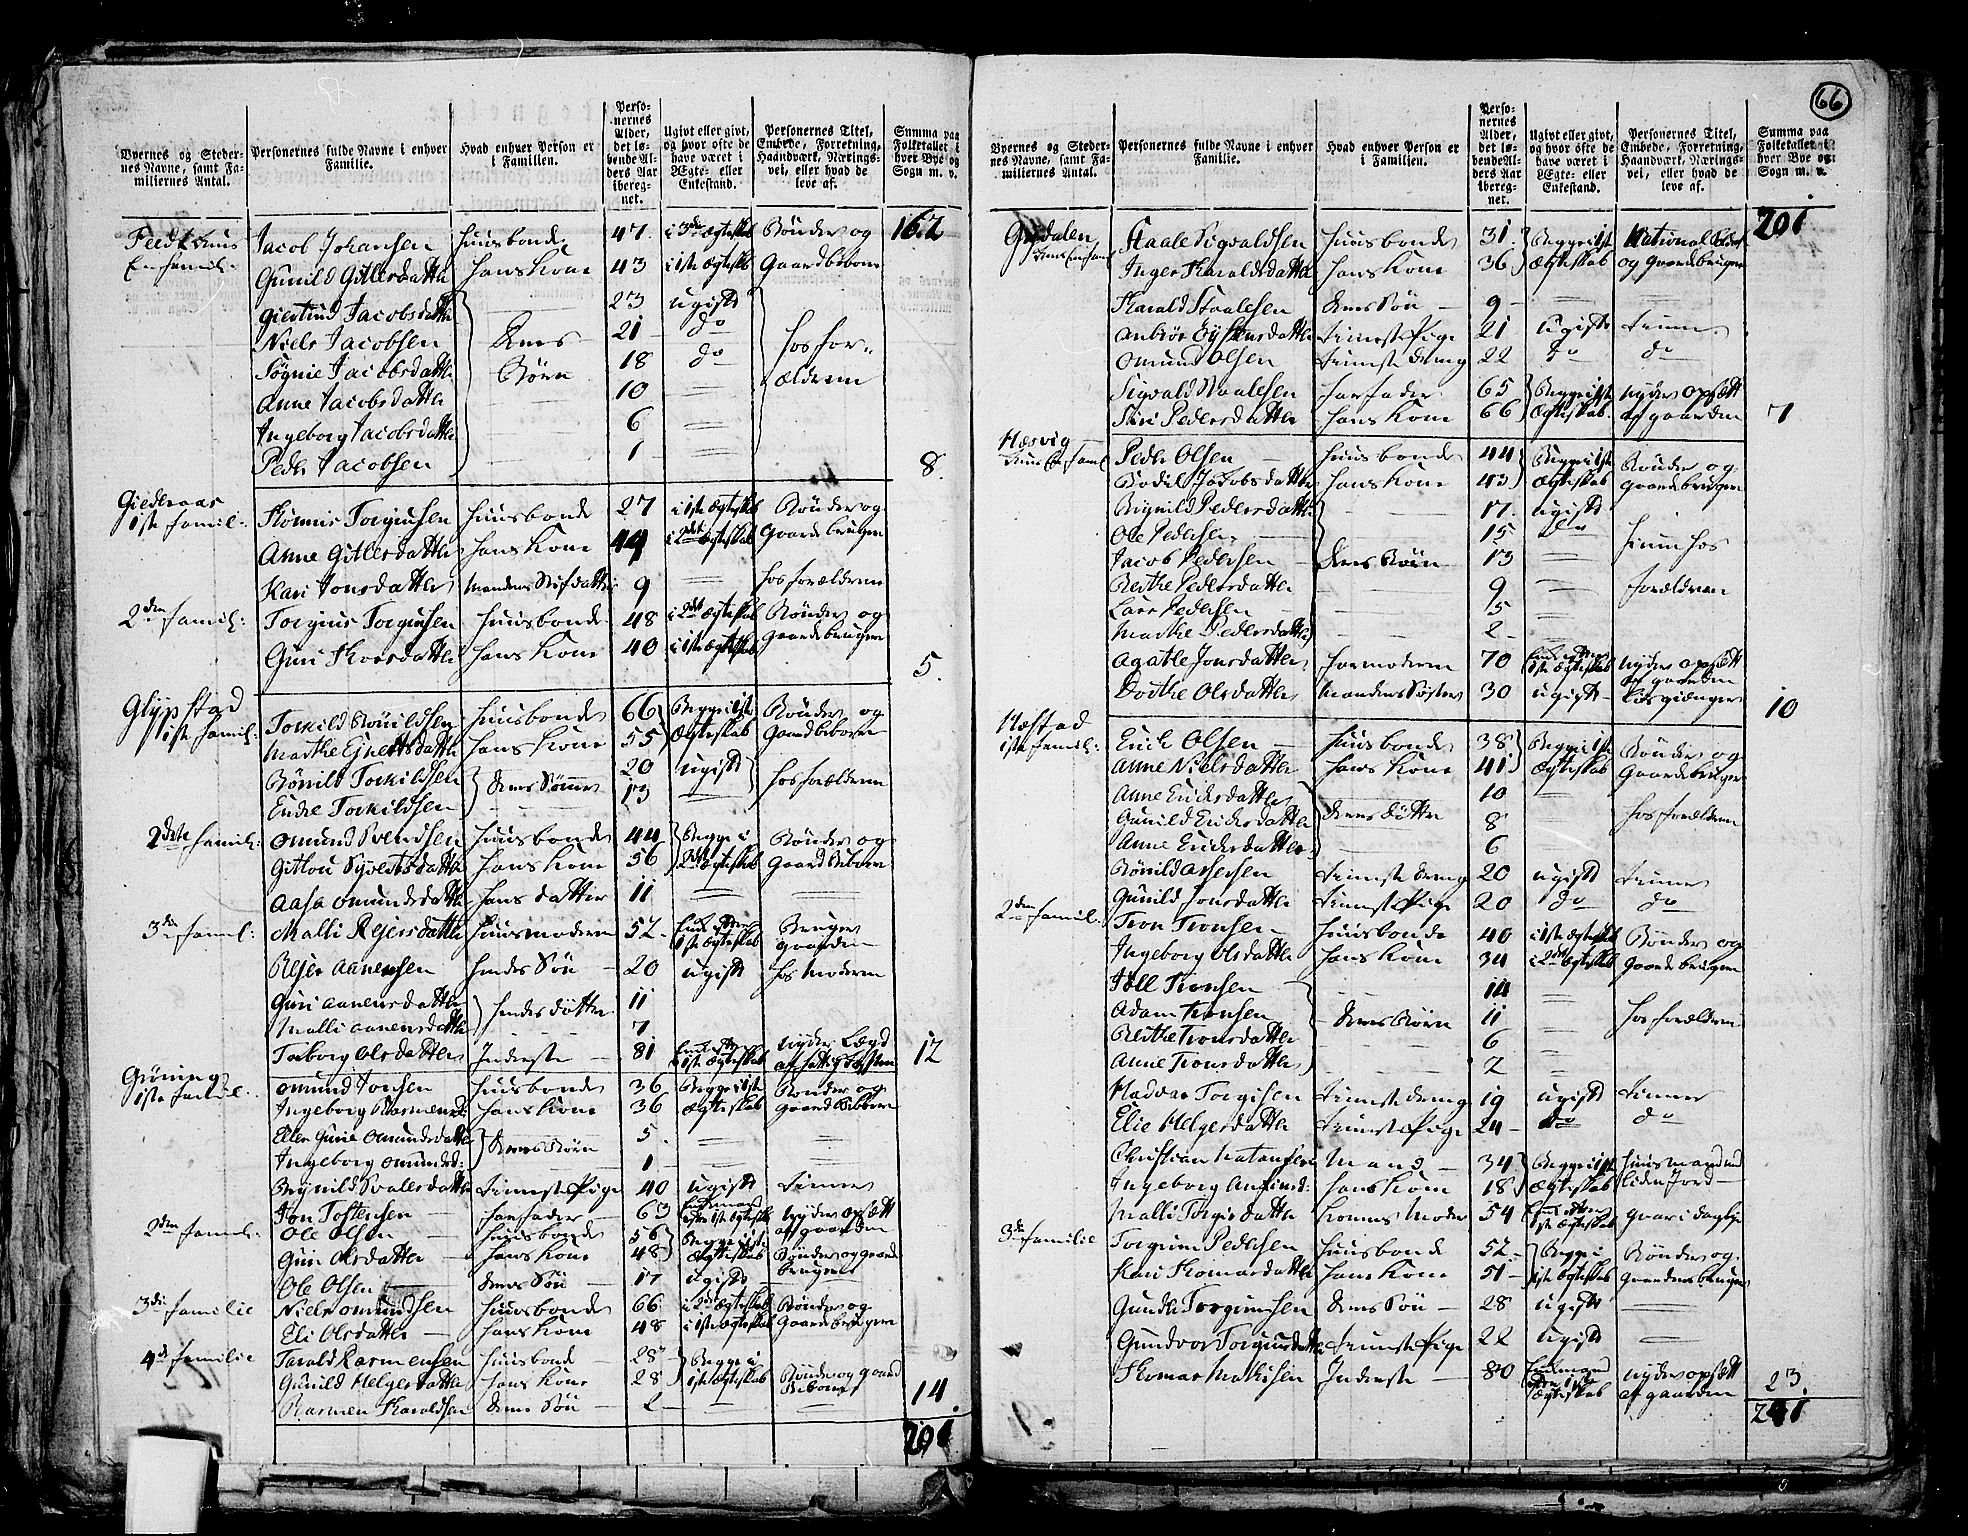 Byernes og Stedernes Navne, samt Familiernes Antal. | Personernes fulde Navne i enhver Familie. | Hvad enhver Person er i Familien. | Personernes Alder, det løbende Alders Aar iberegnet. | Ugivt eller givt, og hvor ofte de have været i Ægte- eller Enkestand. | Personernes Titel, Embede, Forretning, Haandværk, Næringsvei, eller hvad de leve af. | Summa paa Folketallet i hver Bye og Sogn m. v.
162
En famil: | Jacob Johansen | Huusbonde | 47 | i 3die Ægteskab | Bønder og
Gunild Gitlersdatter | Hans Kone | 43 | i 1ste Ægtesk | Gaardbeboere
Giertrud Jacobsdatter | 23 | ugivt
Niels Jacobsen | Deres | 21 | do | hos for-
Søgnie Jacobsdatter | Børn | 18 | do | ældrene
Anne Jacobsdatter | 10
Ingeborg Jacobsdatter | 6
Peder Jacobsen | 1 | 8.
Giederaas
1ste famil: | Tønnis Torgiusen | Huusbonde | 27 | i 1ste Ægteskab | Bønder og
Anne Gitlersdatter | Hans Kone | 44 | i 2det Ægteskab | Gaardebrugere
Kari Jonsdatter | Mandens Stifdatter | 9 | hos forældrene
2den famil: | Torgius Torgiusen | Huusbonde | 48 | i 2det Ægteskab | Bønder og
Guri Thorsdatter | Hans Kone | 40 | i 1ste Ægteskab | Gaardebrugere | 5.
Glypstad
1ste famil: | Torkild Rönildsen | Huusbonde | 66 | Begge i 1ste | Bønder og
Marthe Ejnertsdatter | Hans Kone | 55 | Ægteskab | Gaardbeboere
Rönild Torkildsen | Deres Sønner | 20 | ugivt | hos forældrene
Endre Torkildsen | 13
2den famil: | Omund Svendsen | Huusbonde | 44 | Begge i | Bønder og
Hans Kone | 56 | 2det Ægteskab | Gaardbeboere
Aasa Omundsdatter | Hans datter | 11
3die famil: | Malli Rejersdatter | Huusmoderen | 52 | Enke efter 1ste Ægteskab | Bruger gaarden
Rejer Aanensen | Hendes Søn | 20 | ugivt | hos Moderen
Guri Aanensdatter | Hendes døttre | 11
Malli Aanensdatter | 7
Taaborg Olsdatter | Inderste | 81 | Enke efter 1ste Ægteskab | nyder Lægd af fattig Casen | 12
Gröning
1ste famil: | Omund Jonsen | Huusbonde | 36 | Begge i 1ste | Bønder og
Ingeborg Rasmusd: | Hans Kone | 36 | Ægteskab | Gaardbeboere
Ellen Gurie Omundsdatter | Deres Børn | 5
Ingeborg Omundsd: | 1
Reynild Svallesdatter | Tienestepige | 40 | ugivt | tiener
Jon Tostensen | Farfader | 63 | Enkemand efter 1ste Ægteskab | nyder opsætt af gaarden
2den famil: | Ole Olsen | Huusbonde | 56 | Begge i 1ste | Bønder og gaard
Guri Olsdatter | Hans Kone | 48 | Ægteskab | brugere
Ole Olsen | Deres Søn | 17 | ugivt
3die familie | Niels Omundsen | Huusbonde | 66 | i 2det Ægteskab | Bønder og
Eli Olsdatter | Hans Kone | 48 | i 1ste Ægteskab | Gaardebrugere
4de familie | Tarald Rasmusen | Huusbond | 28 | Begge i | Bønder og gaard
Gunild Helgesdatter | Hans Kone | 28 | 1ste Ægteskab | Beboere
Rasmen Taraldsen | Deres Søn | 2 | 14.
201
66
Byernes og Stedernes Navne, samt Familiernes Antal. | Personernes fulde Navne i enhver Familie. | Hvad enhver Person er i Familien. | Personernes Alder, det løbende Alders Aar iberegnet. | Ugivt eller givt, og hvor ofte de have været i Ægte- eller Enkestand. | Personernes Titel, Embede, Forretning, Haandværk, Næringsvei, eller hvad de leve af. | Summa paa Folketallet i hver Bye og Sogn m. v.
201
Staale Sigvaldsen | Huusbonde | 31 | Begge i 1ste | National Soldat
Inger Haraldsdatter | Hans Kone | 36 | Ægteskab | og gaardebruger
Harald Staalesen | Deres Søn | 9
Tieneste Pige | 21 | Ugivt | tiener
Omund Olsen | Tieneste dreng | 22 | do | do
Sigvald Staalesen | Farfader | 65 | Begge i 1ste | nyder opsætt
Siri Pedersdatter | Hans Kone | 66 | Ægteskab | af gaarden | 7
Næsvig
Peder Olsen | Huusbonde | 44 | Begge i 1ste | Bønder og
Bodil Jacobsdatter | Hans Kone | 43 | Ægteskab | Gaardebrugere
Rignild Pedersdatter | 17 | ugivt
Ole Pedersen | 15 | do | hiem hos
Jacob Pedersen | Deres Børn | 13
Berthe Pedersdatter | 9 | forældrene
Lars Pedersen | 5
Marthe Pedersdatter | 2
Agathe Jonsdatter | Farmoderen | 70 | Enke efter 1ste Ægteskab | nyder opsætt af gaarden
Dorthe Olsdatter | Mandens Søster | 30 | ugivt | Losgiænger | 10
1ste famil: | Erich Olsen | Huusbonde | 38 | Begge i 1ste | Bønder og
Anne Nielsdatter | Hans Kone | 41 | Ægteskab | Gaardebrugere
Anne Ericksdatter | 10
Gunild Ericksdatter | Deres døttre | 8 | hos forældrene
Anne Ericksdatter | 6
Rönild Assersen | Tieneste dreng | 20 | ugivt | tiener
Gunild Jonsdatter | Tieneste Pige | 20 | do | do
2den famil: | Tron Tronsen | Huusbonde | 40 | i 1ste Ægteskab | Bønder og
Ingeborg Olsdatter | Hans Kone | 34 | i 2det Ægteskab | Gaardebrugere
Töll Tronsen | 14
Adam Tronsen | Deres Børn | 11 | hos forældrene
Berthe Tronsdatter | 6
Anne Tronsdatter | 2
Hadvar Torgisen | Tieneste dreng | 19 | ugivt | tiener
Elie Helgesdatter | Tieneste Pige | 24 | do | do
Christian Natansen | Mand | 34 | Begge i 1ste | Huusmand med
Ingeborg | Hans Kone | 18 | Ægteskab | liden Jord
Malli Torgisdatter | Konens Moder | 54 | Enke efter 1ste Ægteskab | gaar i dagleje
3die familie | Torgrim Pedersen | Huusbonde | 52 | Begge i | Bønder og
Kari Thomasdatter | Hans Kone | 51 | 1ste Ægteskab | Gaardens brugere
Torgrimsen | Deres Søn | 28 | ugivt
Gundvor Torgrimsdatter | Tieneste Pige | 22 | ugivt
Thomas Mathisen | Inderste | 80 | Enkemand efter 1ste Ægteskab | nyder opsætt af gaarden | 23.
241